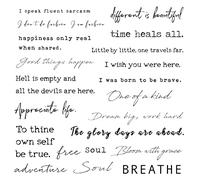 I speak fluent sarcasm
I don't do fashion I am fashion
happiness only real
when shared.
Good things happen
Hell is empty and
all the devils are here.
Appreciate life.
To thine
own self
be true.
free
Soul
adventure
Soul
different is beautiful
time heals all.
Little by little, one travels far.
I wish you were here.
I was born to be brave.
One of a kind
Dream big, work hard
The glory days are ahead.
Bloom with grace
BREATHE